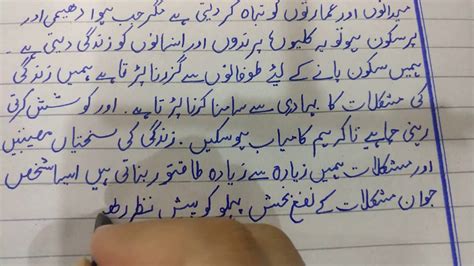 میدانوں اور عمارتوں کو تباہ کر دیتی ہے مگر جب ہوا دھیمی اور
پر سکون ہو تو یہ کلیوں، پرندوں اور انسانوں کو زندگی دیتی ہے۔
ہمیں سکون پانے کے لیئے طوفانوں سے گزرنا پڑتا ہے ہمیں زندگی
کی مشکلات کا بہادری سے سامنا کرنا پڑتا ہے۔ اور کوشش کرتی
رہنی چاہیے تاکہ ہم کامیاب ہو سکیں۔ زندگی کی سختیاں مصیبتیں
اور مشکلات ہمیں زیادہ سے زیادہ طاقتور بناتی ہیں ایسا شخص
جو ان مشکلات کے نفع بخش پہلو کو پیش نظر